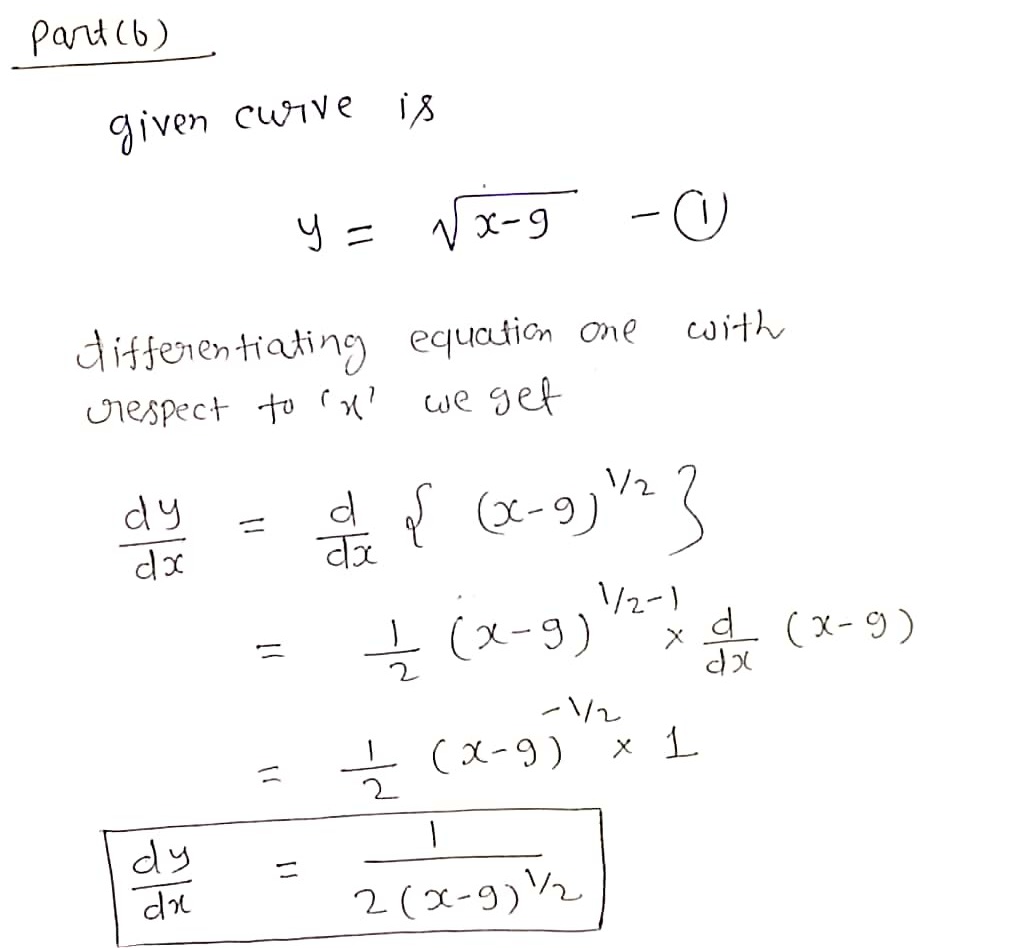 Part(b)
given curve is
y = √x-9 - ①
differentiating equation one with
respect to 'x' we get
dy/dx = d/dx { (x-9)^1/2 }
= 1/2 (x-9)^1/2-1 × d/dx (x-9)
= 1/2 (x-9)^-1/2 × 1
dy/dx = 1/2(x-9)^1/2